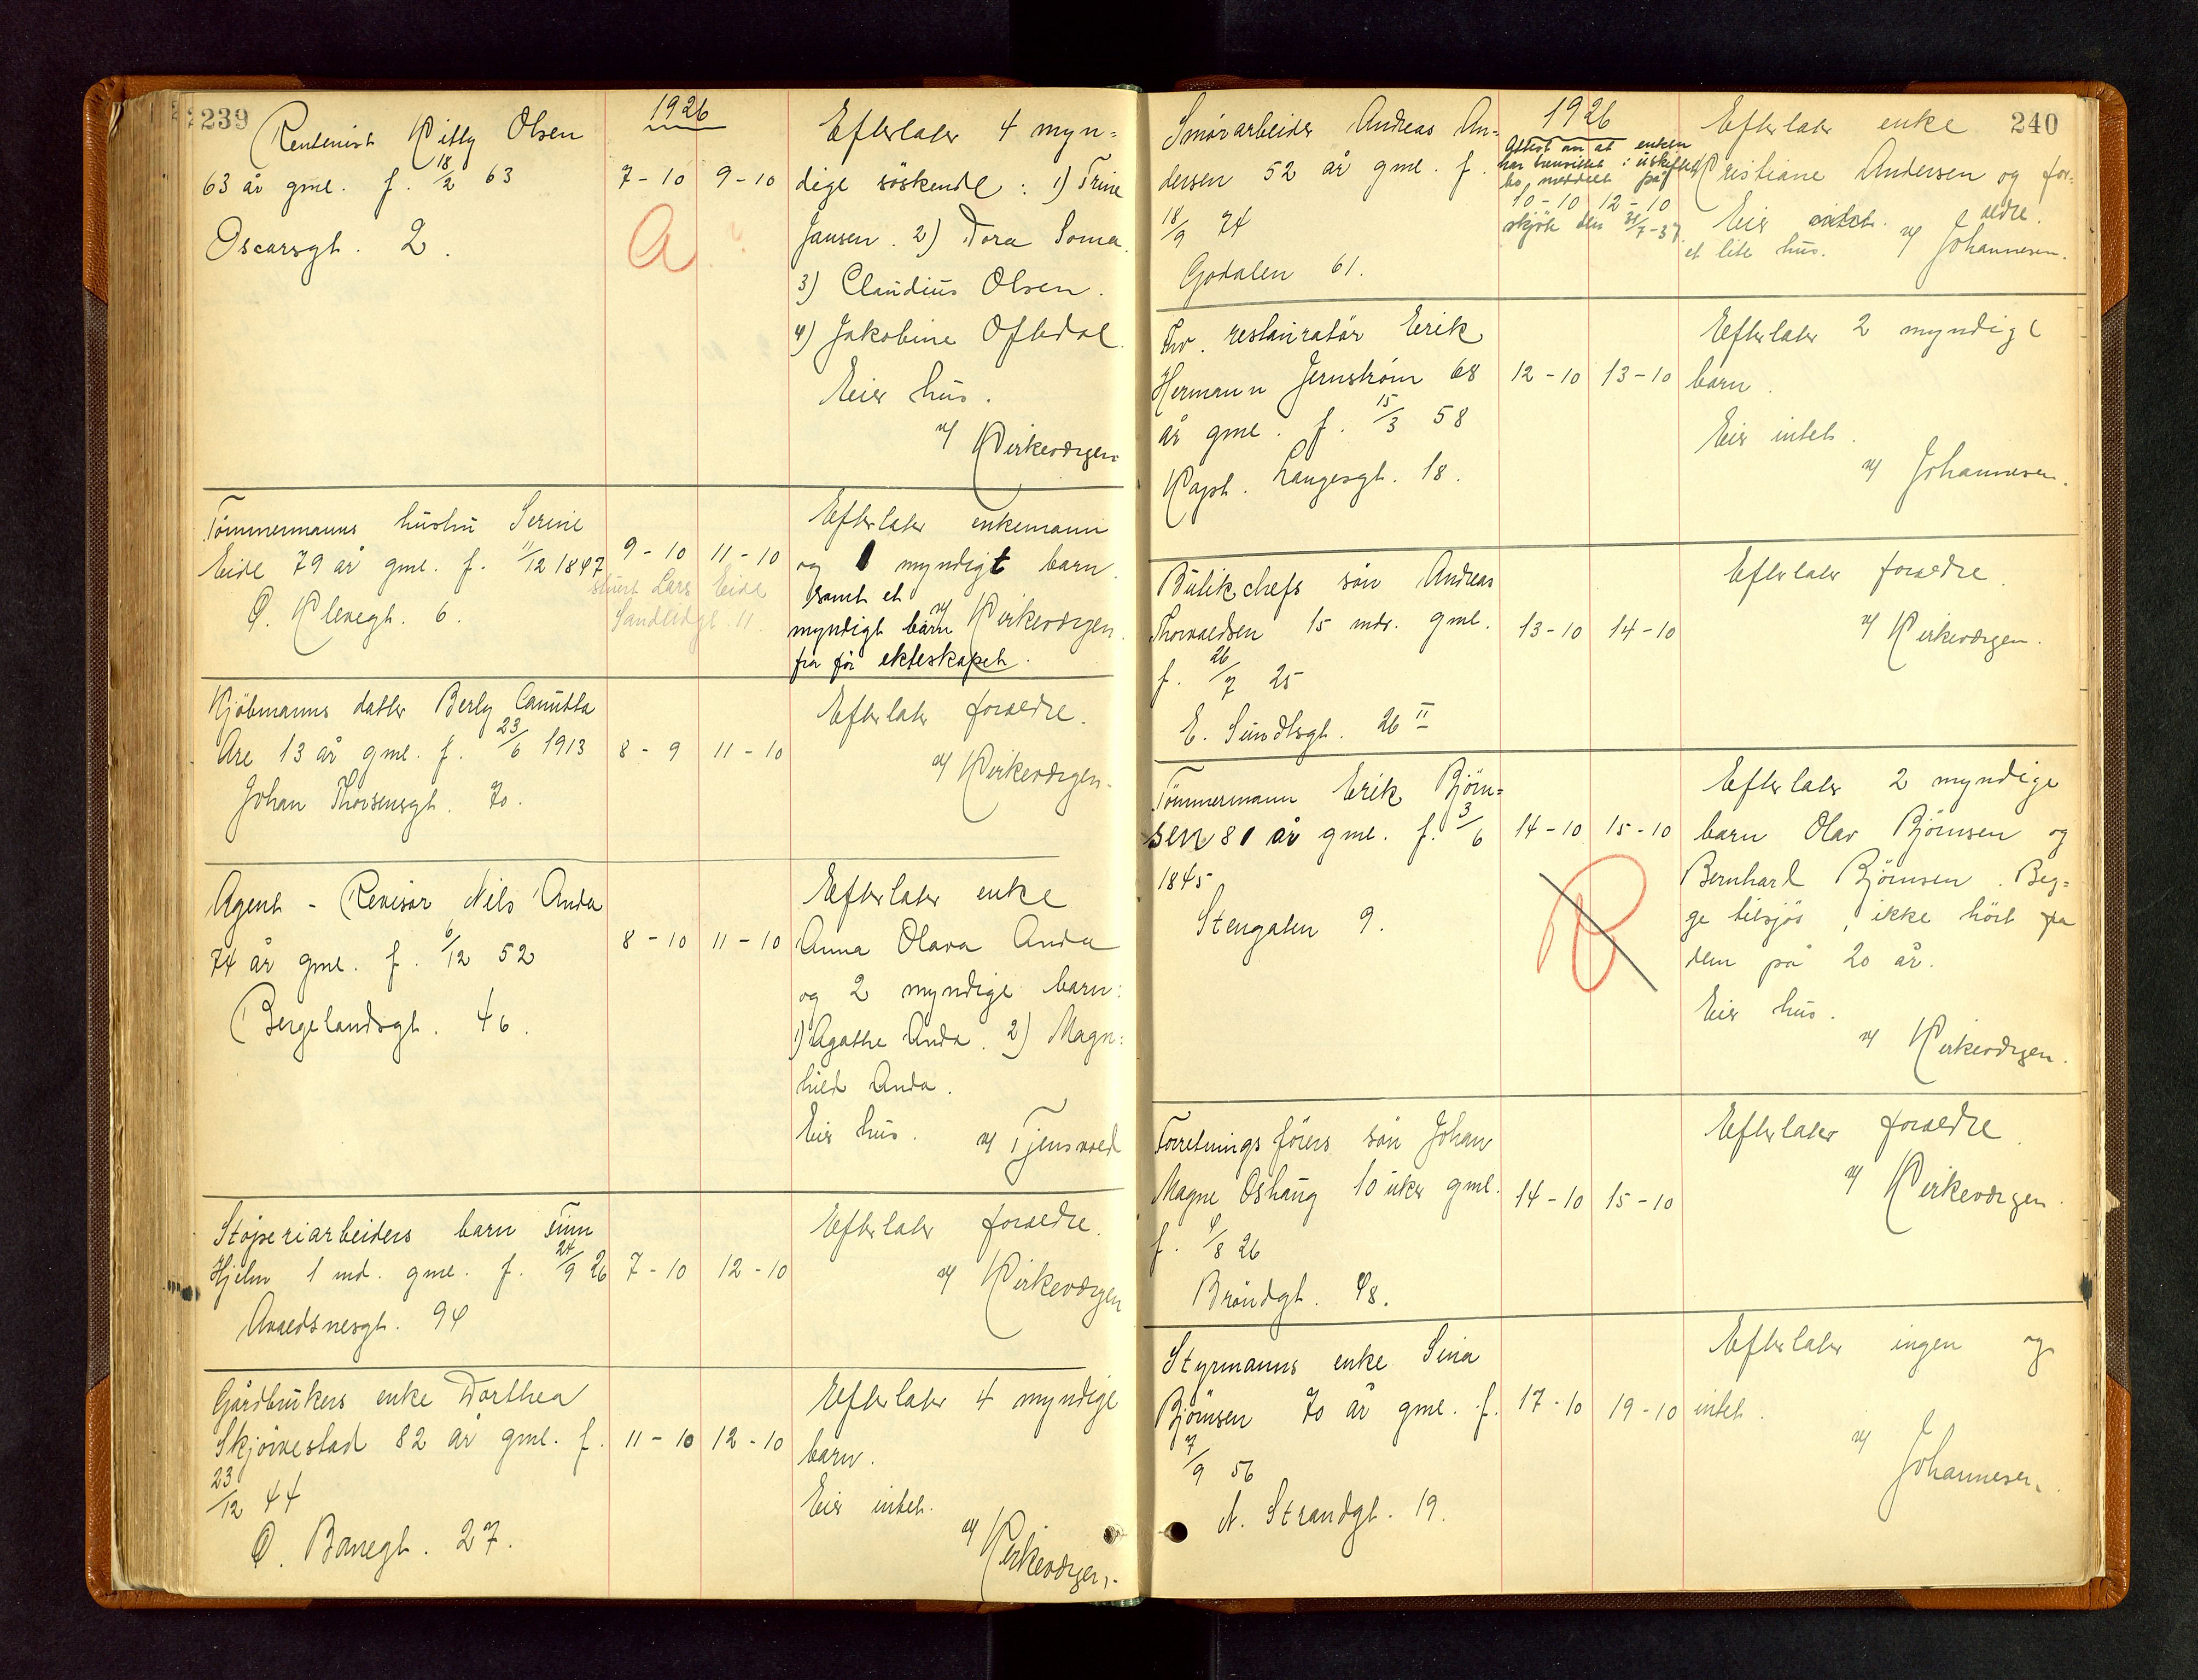 239
1926
Rentenist Kitty Olsen
63 år gml. f. 18/2 63
Oscarsgt. 2.
7-10 9-10
a
Efterlater 4 myn=
dige söskende: 1) Trine
Jansen. 2) Dora Soma.
3) Claudius Olsen.
4) Jakobine Oftedal.
Eier hus.
v/ Kirkevergen
Tömmermanns hustru Serine
Eide 79 år gml. f. 11/12 1847
Ö. Klevegt. 6.
9-10 11-10
Lars Eide
Sandeidgt. 11.
Efterlater enkemann
og 1 myndigt barn.
samt et
myndigt barn v/ Kirkevergen.
fra för ekteskapet.
Kjöbmanns datter Berly Canutta
Are 13 år gml. f. 23/6 1913
Johan Thorsensgt. 70.
8-9 11-10
Efterlater foreldre.
v/ Kirkevergen.
Agent - Revisor Nils Anda
74 år gml. f. 6/12 52
Bergelandsgt. 46.
8-10 11-10
Efterlater enke
Anna Olava Anda
og 2 myndige barn:
1) Agathe Anda. 2) Magn:
hild Anda.
Eier hus. v/ Tjensvold
Stöperiarbeiders barn Finn
Hjelm 1 md. gml. f. 24/9 26
Avaldsnesgt. 94
7-10 12-10
Efterlater foreldre.
v/ Kirkevergen
Gårdbrukers enke Dorthea
Skjörvestad 82 år gml. f.
23/12 44
Ö. Banegt. 27.
11-10 12-10
Efterlater 4 myndige
barn.
Eier intet.
v/ Kirkevergen.
240
1926
Smörarbeider Andreas An=
dersen 52 år gml. f.
18/9 74
Godalen 61.
Attest om at enken
har hensittet i uskiftet
bo, meddelt på
10-10 12-10
skjöte den 31/7-37.
Efterlater enke
Kristiane Andersen og for=
eldre.
Eier intet.
et lite hus. v/ Johannesen.
Fhv. restauratör Erik
Hermann Jernström 68
år gml. f. 15/3 58
Kapt. Langesgt. 18.
12-10 13-10
Efterlater 2 myndige
barn.
Eier intet.
v/ Johannesen.
Butikchefs sön Andreas
Thorvaldsen 15 mdr. gml.
f. 26/7 25
E. Sundtsgt. 26 II
13-10 14-10
Efterlater foreldre.
v/ Kirkevergen.
Tömmermann Erik Björn=
sen 81 år gml. f. 3/6
1845
Stengaten 9.
14-10 15-10
Efterlater 2 myndige
barn Olav Björnsen og
Bernhard Björnsen. Beg=
ge tilsjös, ikke hört fra
dem på 20 år.
Eier hus.
v/ Kirkevergen.
Forretningsförers sön Johan
Magne Oshaug 10 uker gml.
f. 4/8 26
Bröndgt. 48.
14-10 15-10
Efterlater foreldre.
v/ Kirkevergen.
Styrmanns enke Sina
Björnsen 70 år gml. f.
7/9 56
N. Strandgt. 19.
17-10 19-10
Efterlater ingen og
intet.
v/ Johannesen.